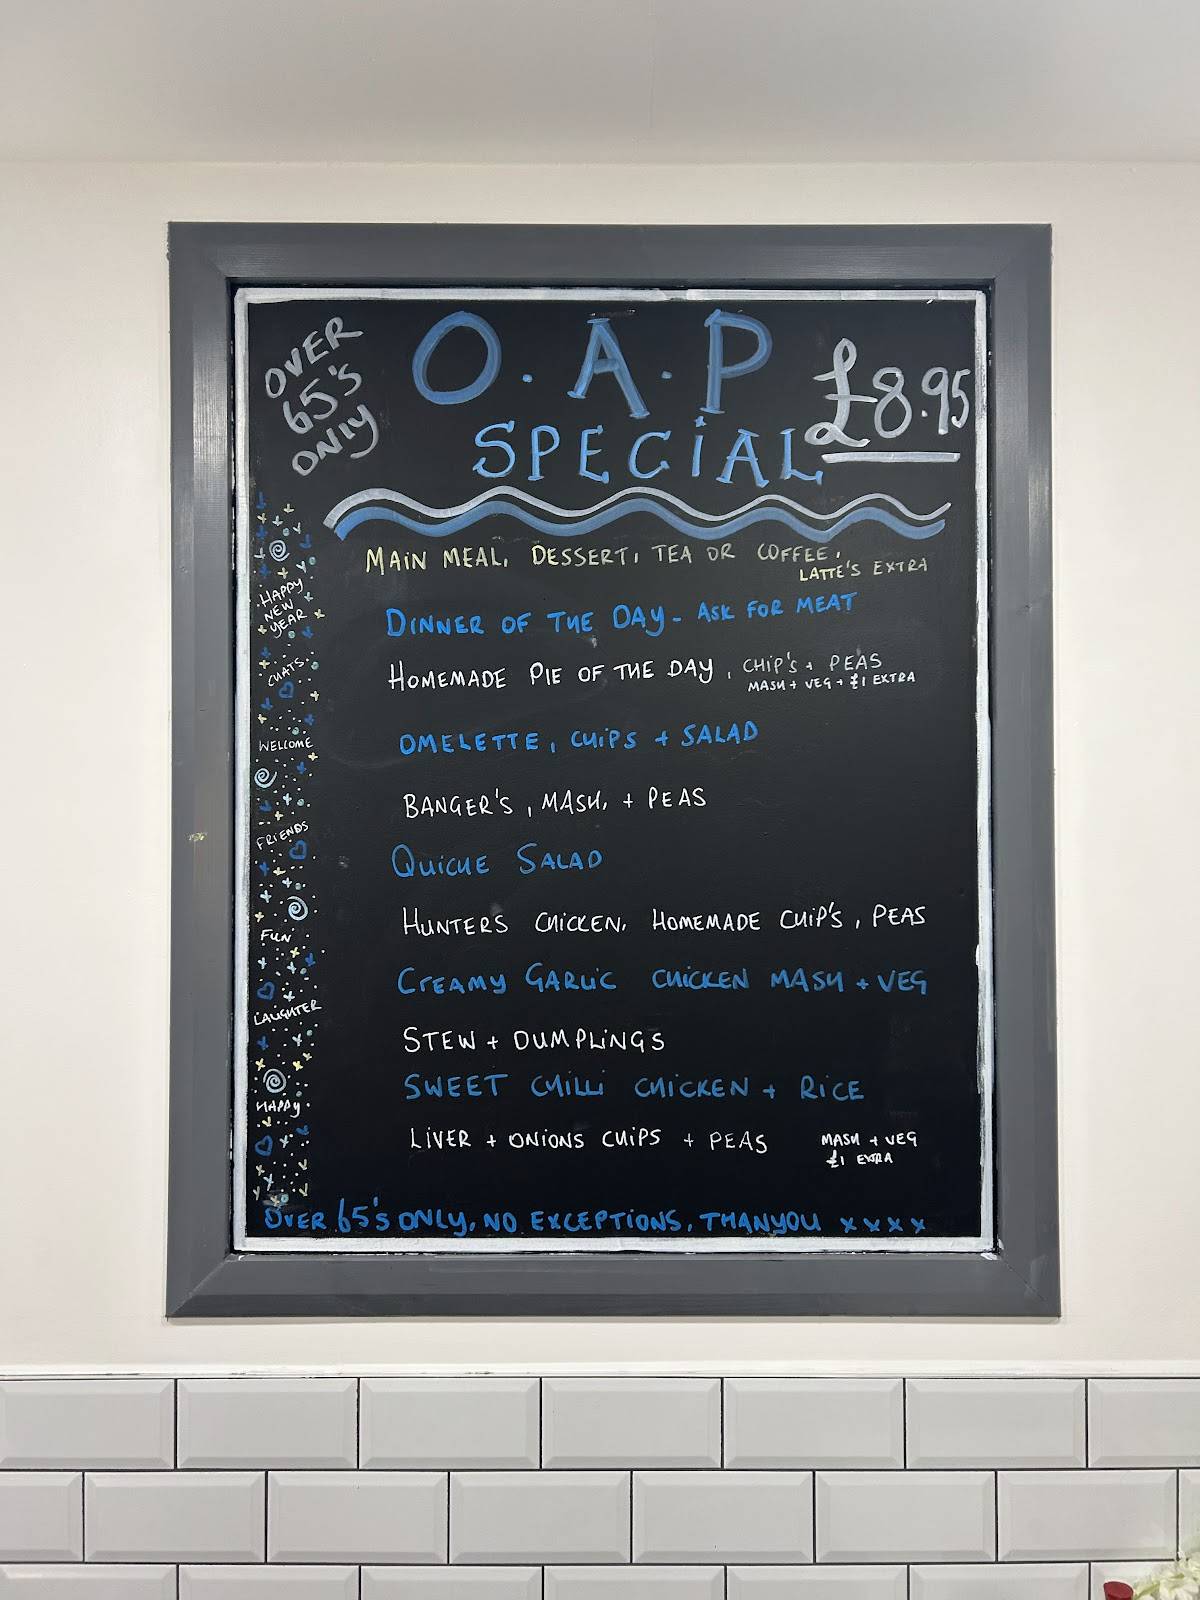 OVER
65'S
ONLY
O.A.P
SPECIAL
£8.95
MAIN MEAL, DESSERT, TEA OR COFFEE,
LATTE'S EXTRA
DINNER OF THE DAY - ASK FOR MEAT
HOMEMADE PIE OF THE DAY, CHIP'S + PEAS
MASH + VEG + £1 EXTRA
OMELETTE, CHIPS + SALAD
BANGER'S, MASH, + PEAS
QUICHE SALAD
HUNTERS CHICKEN, HOMEMADE CHIP'S, PEAS
CREAMY GARLIC CHICKEN MASH + VEG
STEW + DUMPLINGS
SWEET CHILLI CHICKEN + RICE
LIVER + ONIONS CHIPS + PEAS
MASH + VEG
£1 EXTRA
HAPPY
NEW
YEAR
CHATS
WELCOME
FRIENDS
FUN
LAUGHTER
HAPPY
OVER 65'S ONLY, NO EXCEPTIONS, THANYOU xxxx